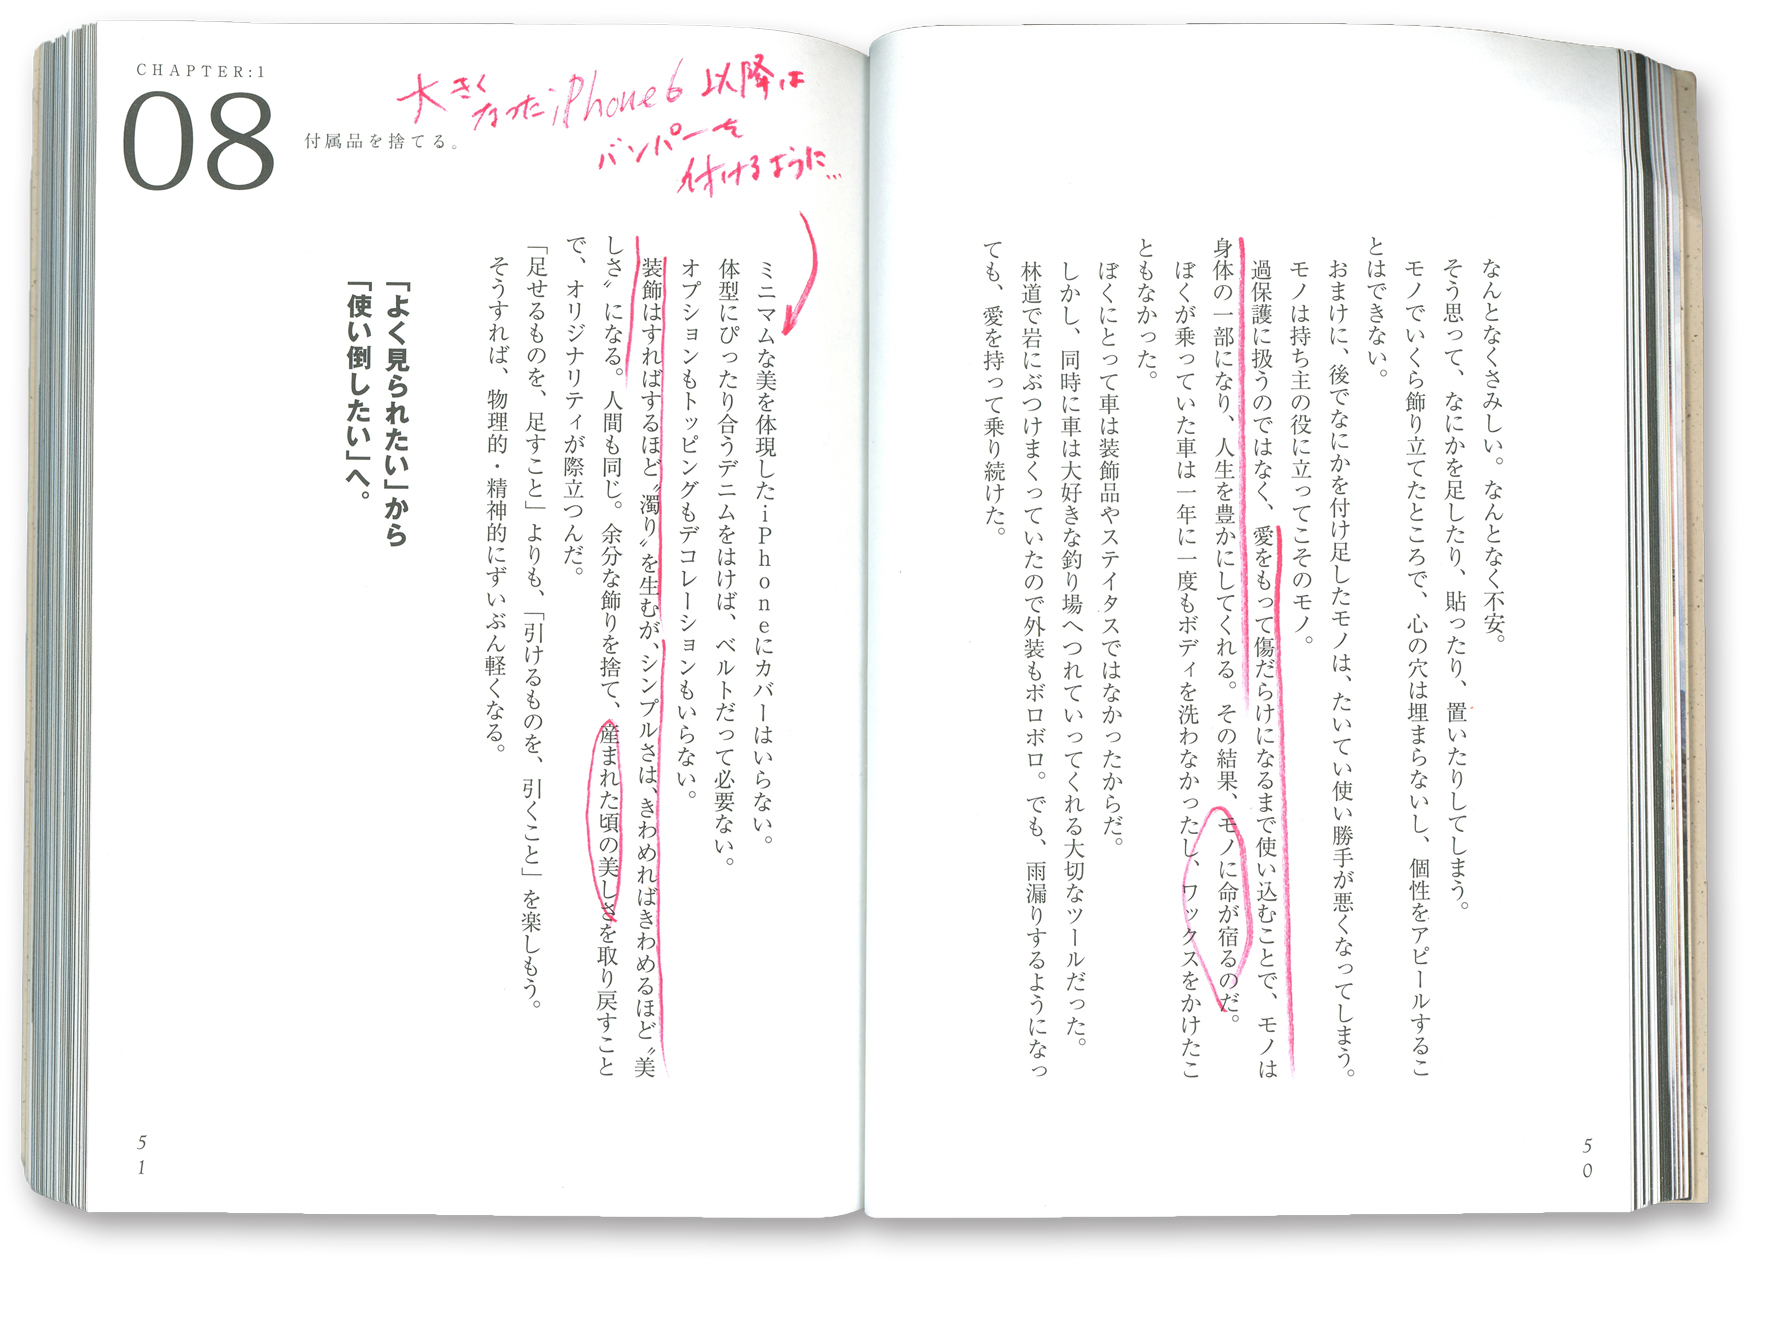 なんとなくさみしい。なんとなく不安。
そう思って、なにかを足したり、貼ったり、置いたりしてしまう。
モノでいくら飾り立てたところで、心の穴は埋まらないし、個性をアピールするこ
とはできない。
おまけに、後でなにかを付け足したモノは、たいてい使い勝手が悪くなってしまう。
モノは持ち主の役に立ってこそのモノ。
過保護に扱うのではなく、愛をもって傷だらけになるまで使い込むことで、モノは
身体の一部になり、人生を豊かにしてくれる。その結果、モノに命が宿るのだ。
ぼくが乗っていた車は一年に一度もボディを洗わなかったし、ワックスをかけたこ
ともなかった。
ぼくにとって車は装飾品やステイタスではなかったからだ。
しかし、同時に車は大好きな釣り場へつれていってくれる大切なツールだった。
林道で岩にぶつけまくっていたので外装もボロボロ。でも、雨漏りするようになっ
ても、愛を持って乗り続けた。
50
CHAPTER:1
08
付属品を捨てる。
大きく
なったiPhone6以降は
バンパーを
付けるように…
ミニマムな美を体現したiPhoneにカバーはいらない。
体型にぴったり合うデニムをはけば、ベルトだって必要ない。
オプションもトッピングもデコレーションもいらない。
装飾はすればするほど〝濁り〟を生むが、シンプルさは、きわめればきわめるほど〝美
しさ〟になる。人間も同じ。余分な飾りを捨て、産まれた頃の美しさを取り戻すこと
で、オリジナリティが際立つんだ。
「足せるものを、足すこと」よりも、「引けるものを、引くこと」を楽しもう。
そうすれば、物理的・精神的にずいぶん軽くなる。
「よく見られたい」から
「使い倒したい」へ。
51